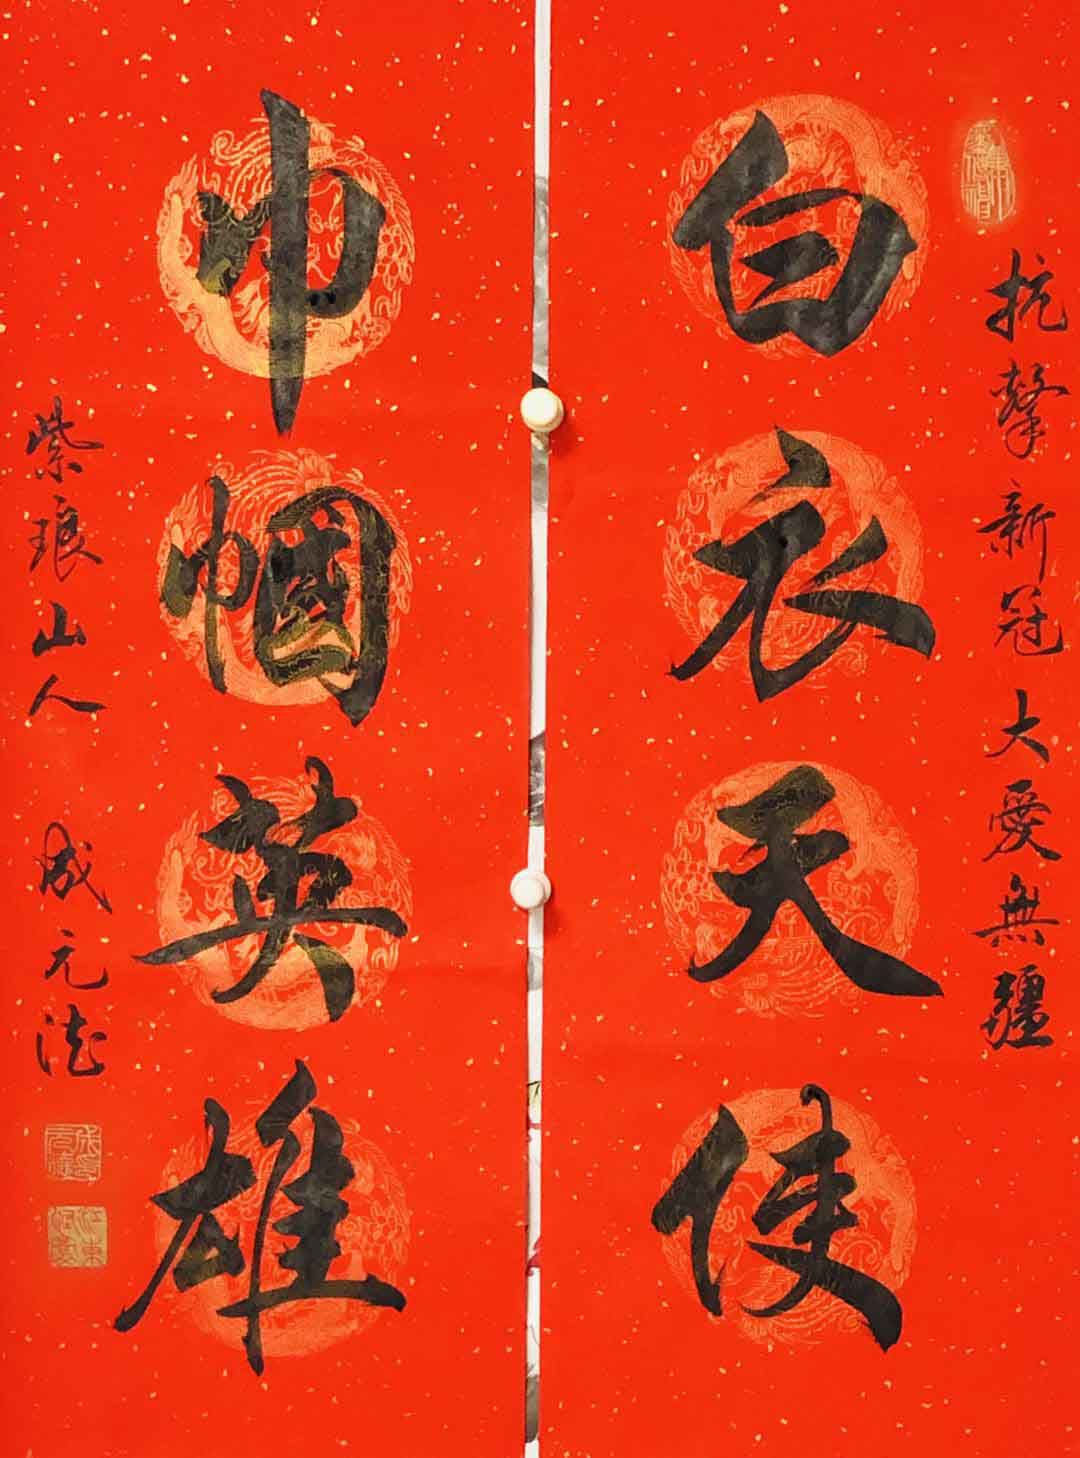 抗擊新冠大愛無疆
白衣天使
巾帼英雄
紫琅山人 成元法